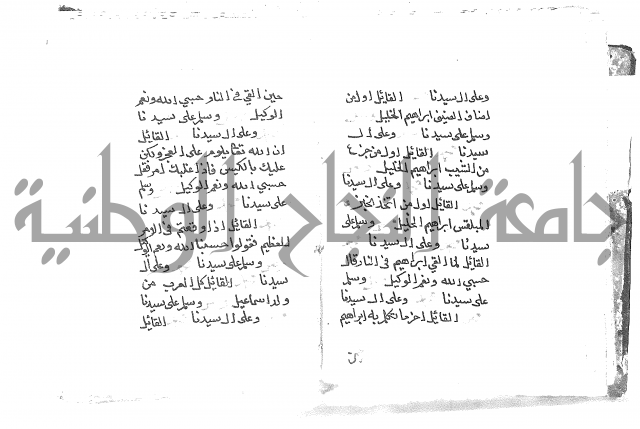 وعلى ال سيدنا القائل اول من
اضاف الضيف ابراهيم الخليل
وسلم على سيدنا وعلى ال
سيدنا القائل اول من جزع
من الشيب ابراهيم الخليل
وسلم على سيدنا وعلى ال سيدنا
القائل اول من اتخذ الخبز
المبلقس ابراهيم الخليل وسلم على
سيدنا وعلى ال سيدنا
القائل لما القي ابراهيم في النار قال
حسبي الله ونعم الوكيل وسلم
على سيدنا وعلى ال سيدنا
القائل اخر ما تكلم به ابراهيم
حين القي في النار حسبي الله ونعم
الوكيل وسلم على سيدنا
وعلى ال سيدنا القائل
ان الله تعالى يلوم على العجز ولكن
عليك بالكيس فاذا غلبك امر فقل
حسبي الله ونعم الوكيل وسلم
على سيدنا وعلى ال سيدنا
القائل اذا وقعتم في الامر
العظيم فقولوا حسبنا الله ونعم الوكيل
وسلم على سيدنا وعلى ال
سيدنا القائل كل العرب من
ولد اسماعيل وسلم على سيدنا
وعلى ال سيدنا القائل
جامعة النجاح الوطنية